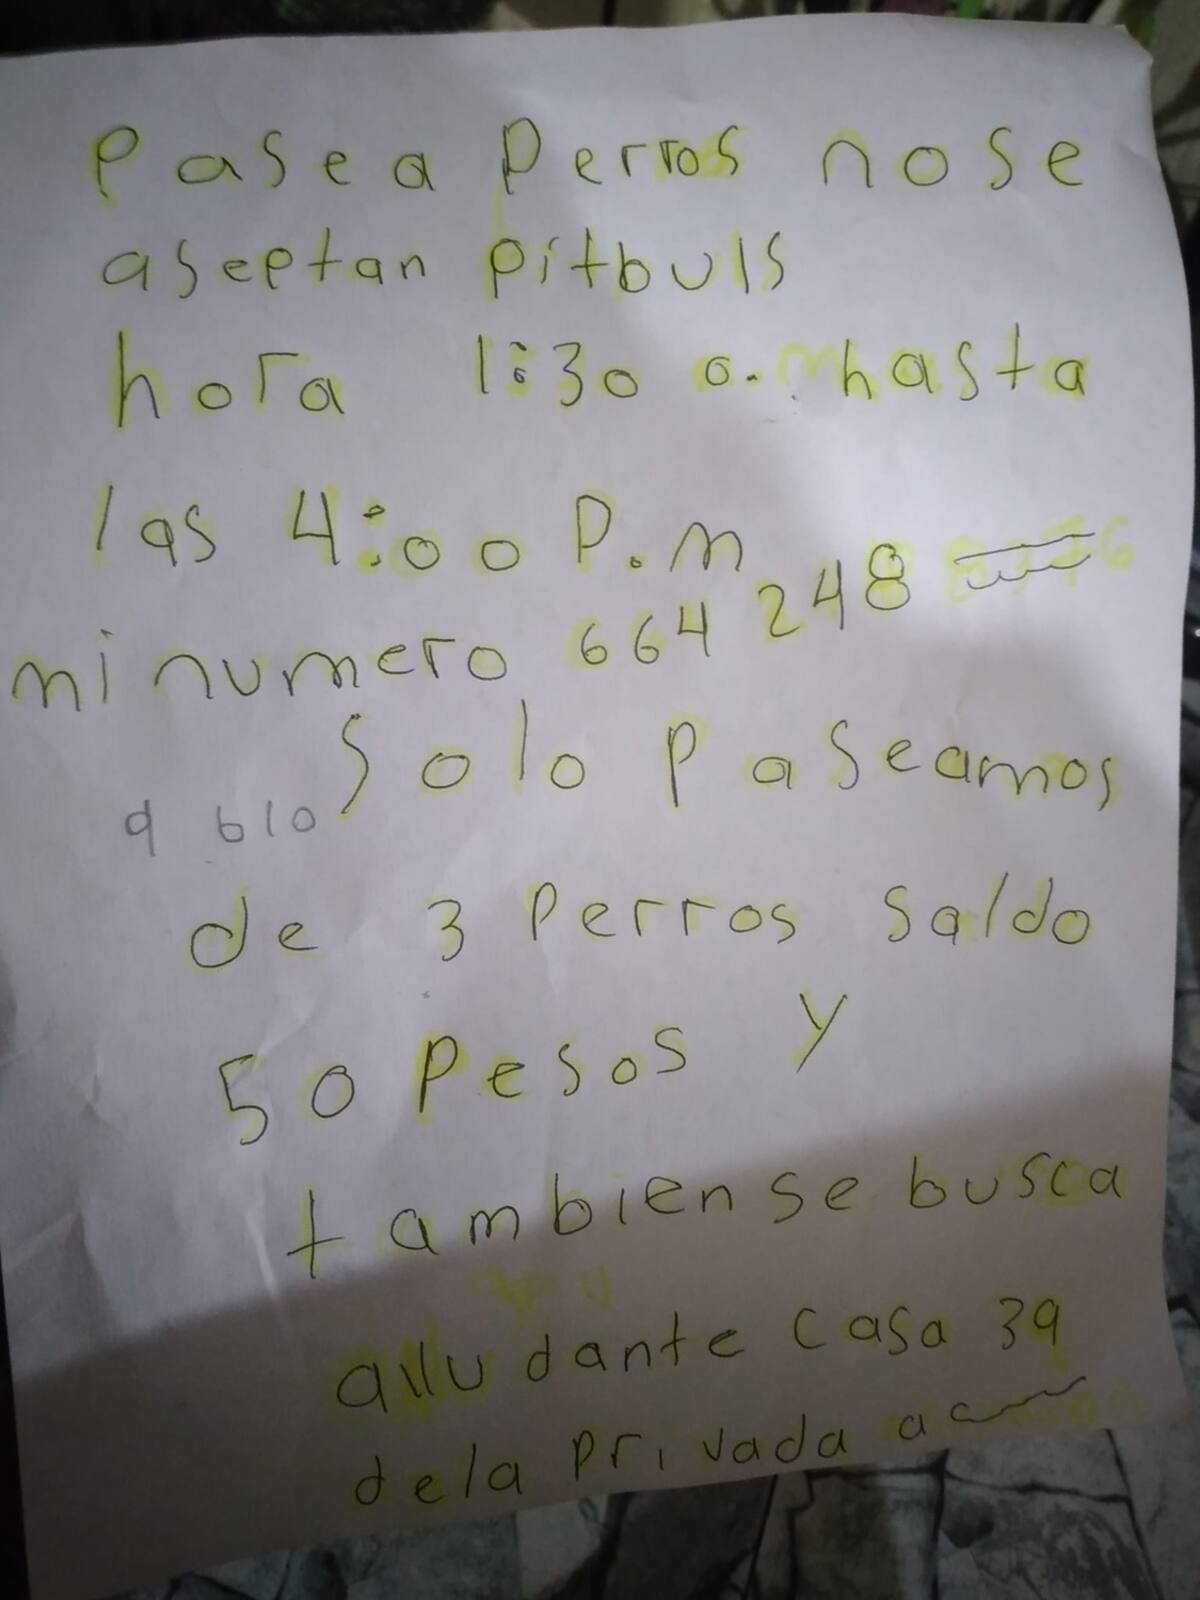 Pasea Perros nose
aseptan pitbuls
hora 1:30 a.m hasta
las 4:00 P.m
mi numero 664 248
Solo Paseamos
a blo
de 3 Perros saldo
50 Pesos y
tambien se busca
alludante casa 39
dela Privada a